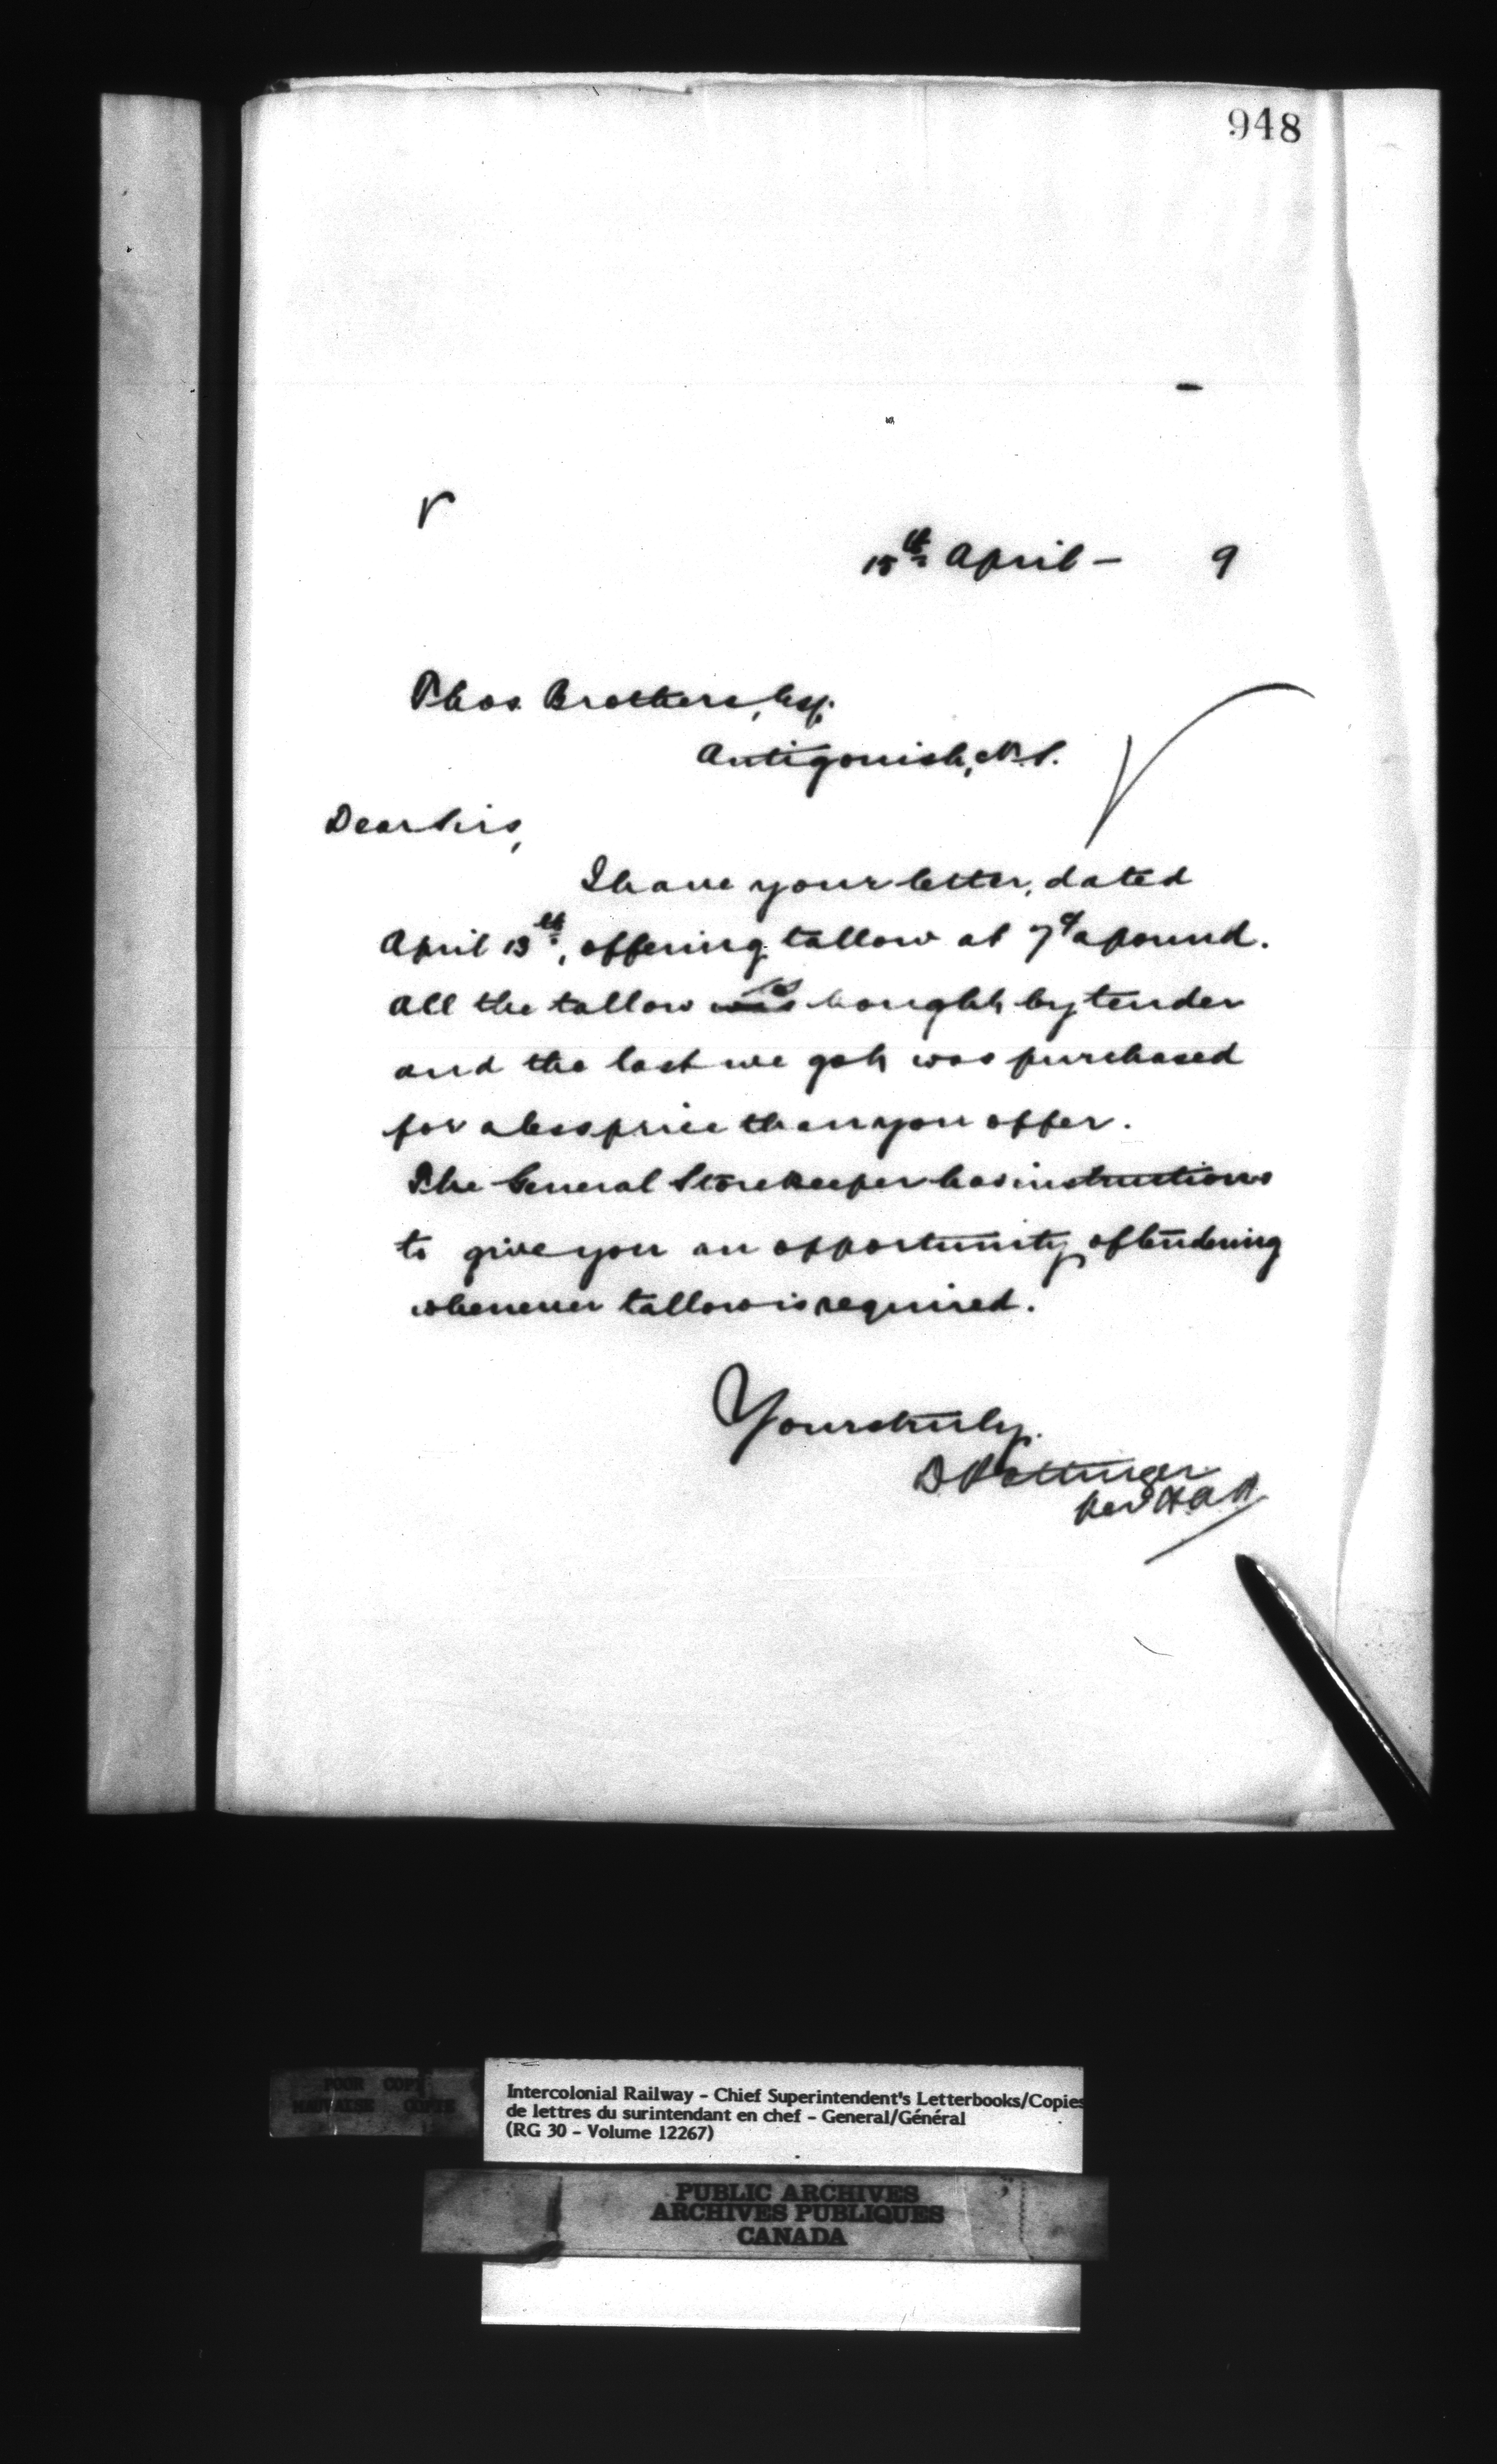 948
15th April - 9
Thos. Brothers, Esq.
Antigonish, N.S.
Dear Sir,
I have your letter, dated
April 13th, offering tallow at 7d a pound.
All the tallow is bought by tender
and the last we got was purchased
for a less price than you offer.
The General Storekeeper has instructions
to give you an opportunity of tendering
whenever tallow is required.
Yours truly,
D Pottinger
POOR COPY
MAUVAISE COPIE
Intercolonial Railway - Chief Superintendent's Letterbooks/Copies
de lettres du surintendant en chef - General/Général
(RG 30 - Volume 12267)
PUBLIC ARCHIVES
ARCHIVES PUBLIQUES
CANADA